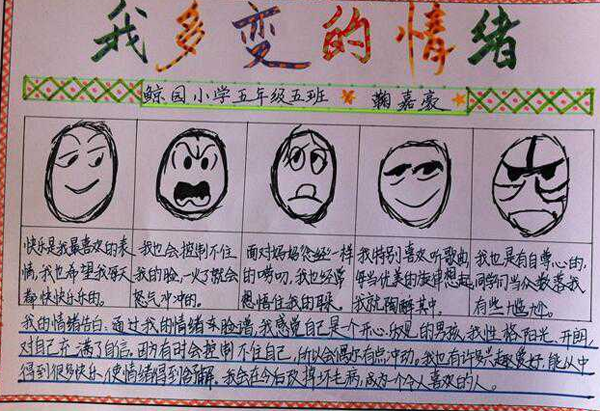 我多变的情绪
鲸园小学五年级五班 鞠嘉豪
快乐是我最喜欢的表
情,我也希望我每天
都快快乐乐的。
我也会控制不住
我的脸,一火了就会
怒气冲冲的。
面对妈妈“念经”一样
的唠叨,我也经常
想捂住我的耳朵。
我特别喜欢听歌曲,
每当优美的旋律想起,
我就陶醉其中。
我也是有自尊心的,
同学们当众数落我
有些尴尬。
我的情绪告白:通过我的情绪来脸谱,我感觉自己是一个开心乐观的男孩,我性格阳光、开朗,
对自己充满了自信。因为有时会控制不住自己,所以会偶尔有点冲动。我也有许多兴趣爱好,能从中
得到很多快乐,使情绪得到缓解。我会在今后改掉坏毛病,成为一个令人喜欢的人。